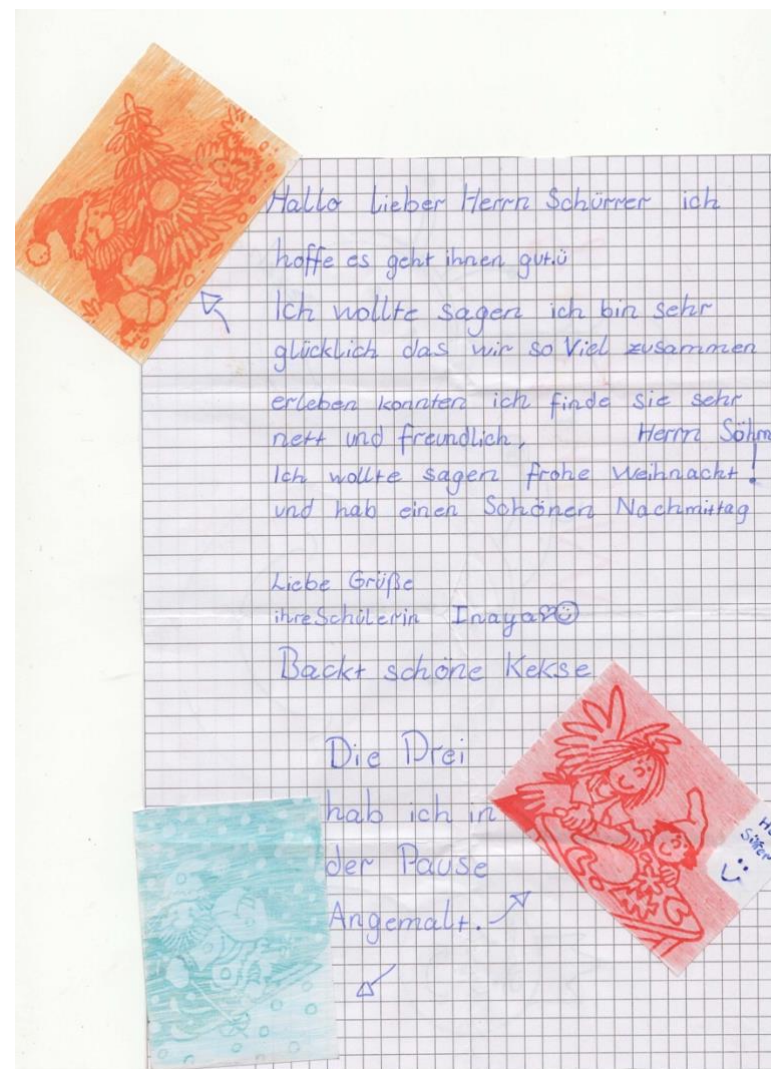 Hallo Lieber Herrn Schürrer ich
hoffe es geht ihnen gut.ü
Ich wollte sagen ich bin sehr
glücklich das wir so Viel zusammen
erleben konnten ich finde sie sehr
nett und freundlich, Herrn Söhm
Ich wollte sagen frohe Weihnacht!
und hab einen Schönen Nachmittag
Liebe Grüße
ihre Schülerin Inaya♡☺
Backt schöne Kekse
Die Drei
hab ich in
der Pause
Angemalt.